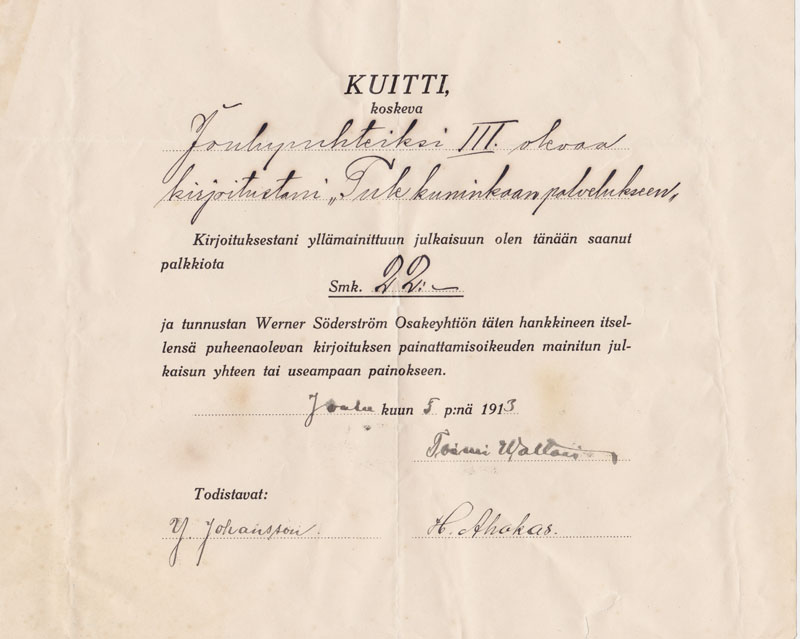 KUITTI,
koskeva
Joulupuhteiksi III. olevaa
kirjoitustani „Tuk kuninkaan palvelukseen„
Kirjoituksestani yllämainittuun julkaisuun olen tänään saanut
palkkiota
Smk. 22:–
ja tunnustan Werner Söderström Osakeyhtiön täten hankkineen itsel-
lensä puheenaolevan kirjoituksen painattamisoikeuden mainitun jul-
kaisun yhteen tai useampaan painokseen.
Joulu kuun 5 p:nä 1913
Toimi
Todistavat:
Y. Johansson.
H. Ahokas.